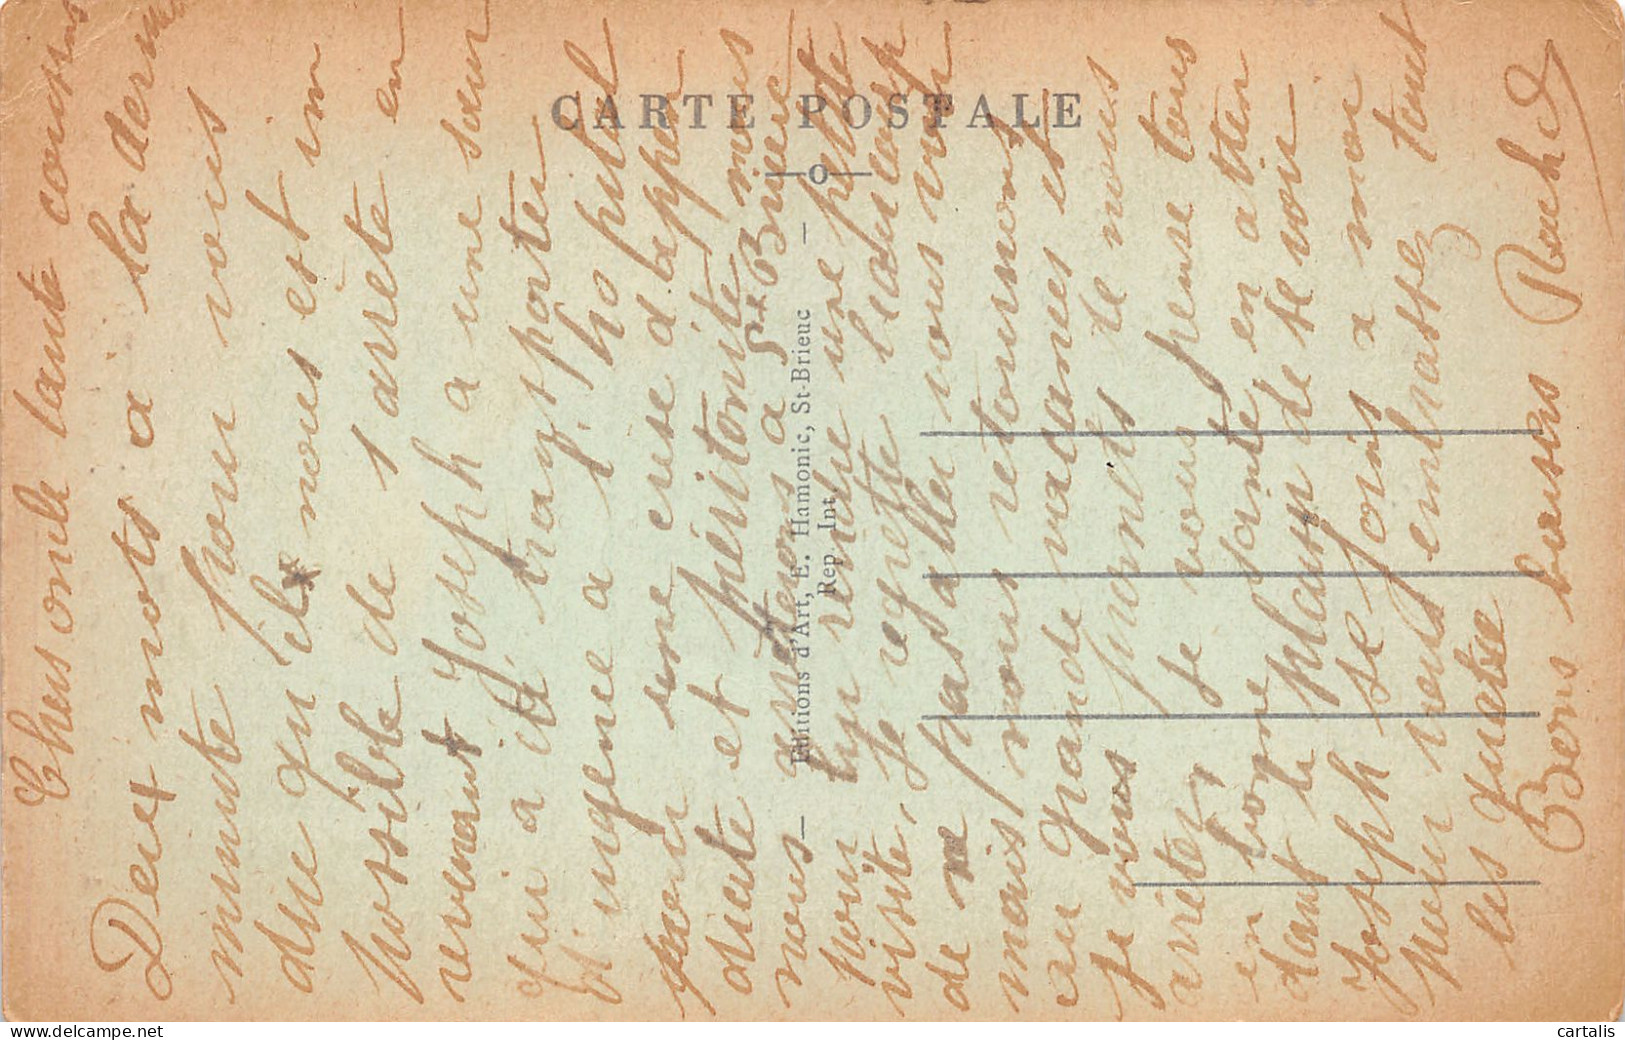 Chers oncle tante cousins
Deux mots à la dernière
minute pour vous
dire qu il nous est im
possible de s arrêté en
revenant Joseph a une sœur
qui a été transportée
d'urgence a l'hopital
pour une crise d'appen
dicite et péritonite mais
nous restons a St Brieuc
pour lui rendre une petite
visite, je regrette beaucoup
de ne pas aller vous voir
mais nous retournons
au grande vacances et
je vous promets de nous
arrêter je vous pense tous
en bonne santé en atten
dant le plaisir de te voir
Joseph se joins a moi
pour vous embrasser tout
les quatre
Bons baisers
CARTE POSTALE
Editions d'Art, E. Hamonic, St-Brieuc
Rep. Int.
cartalis